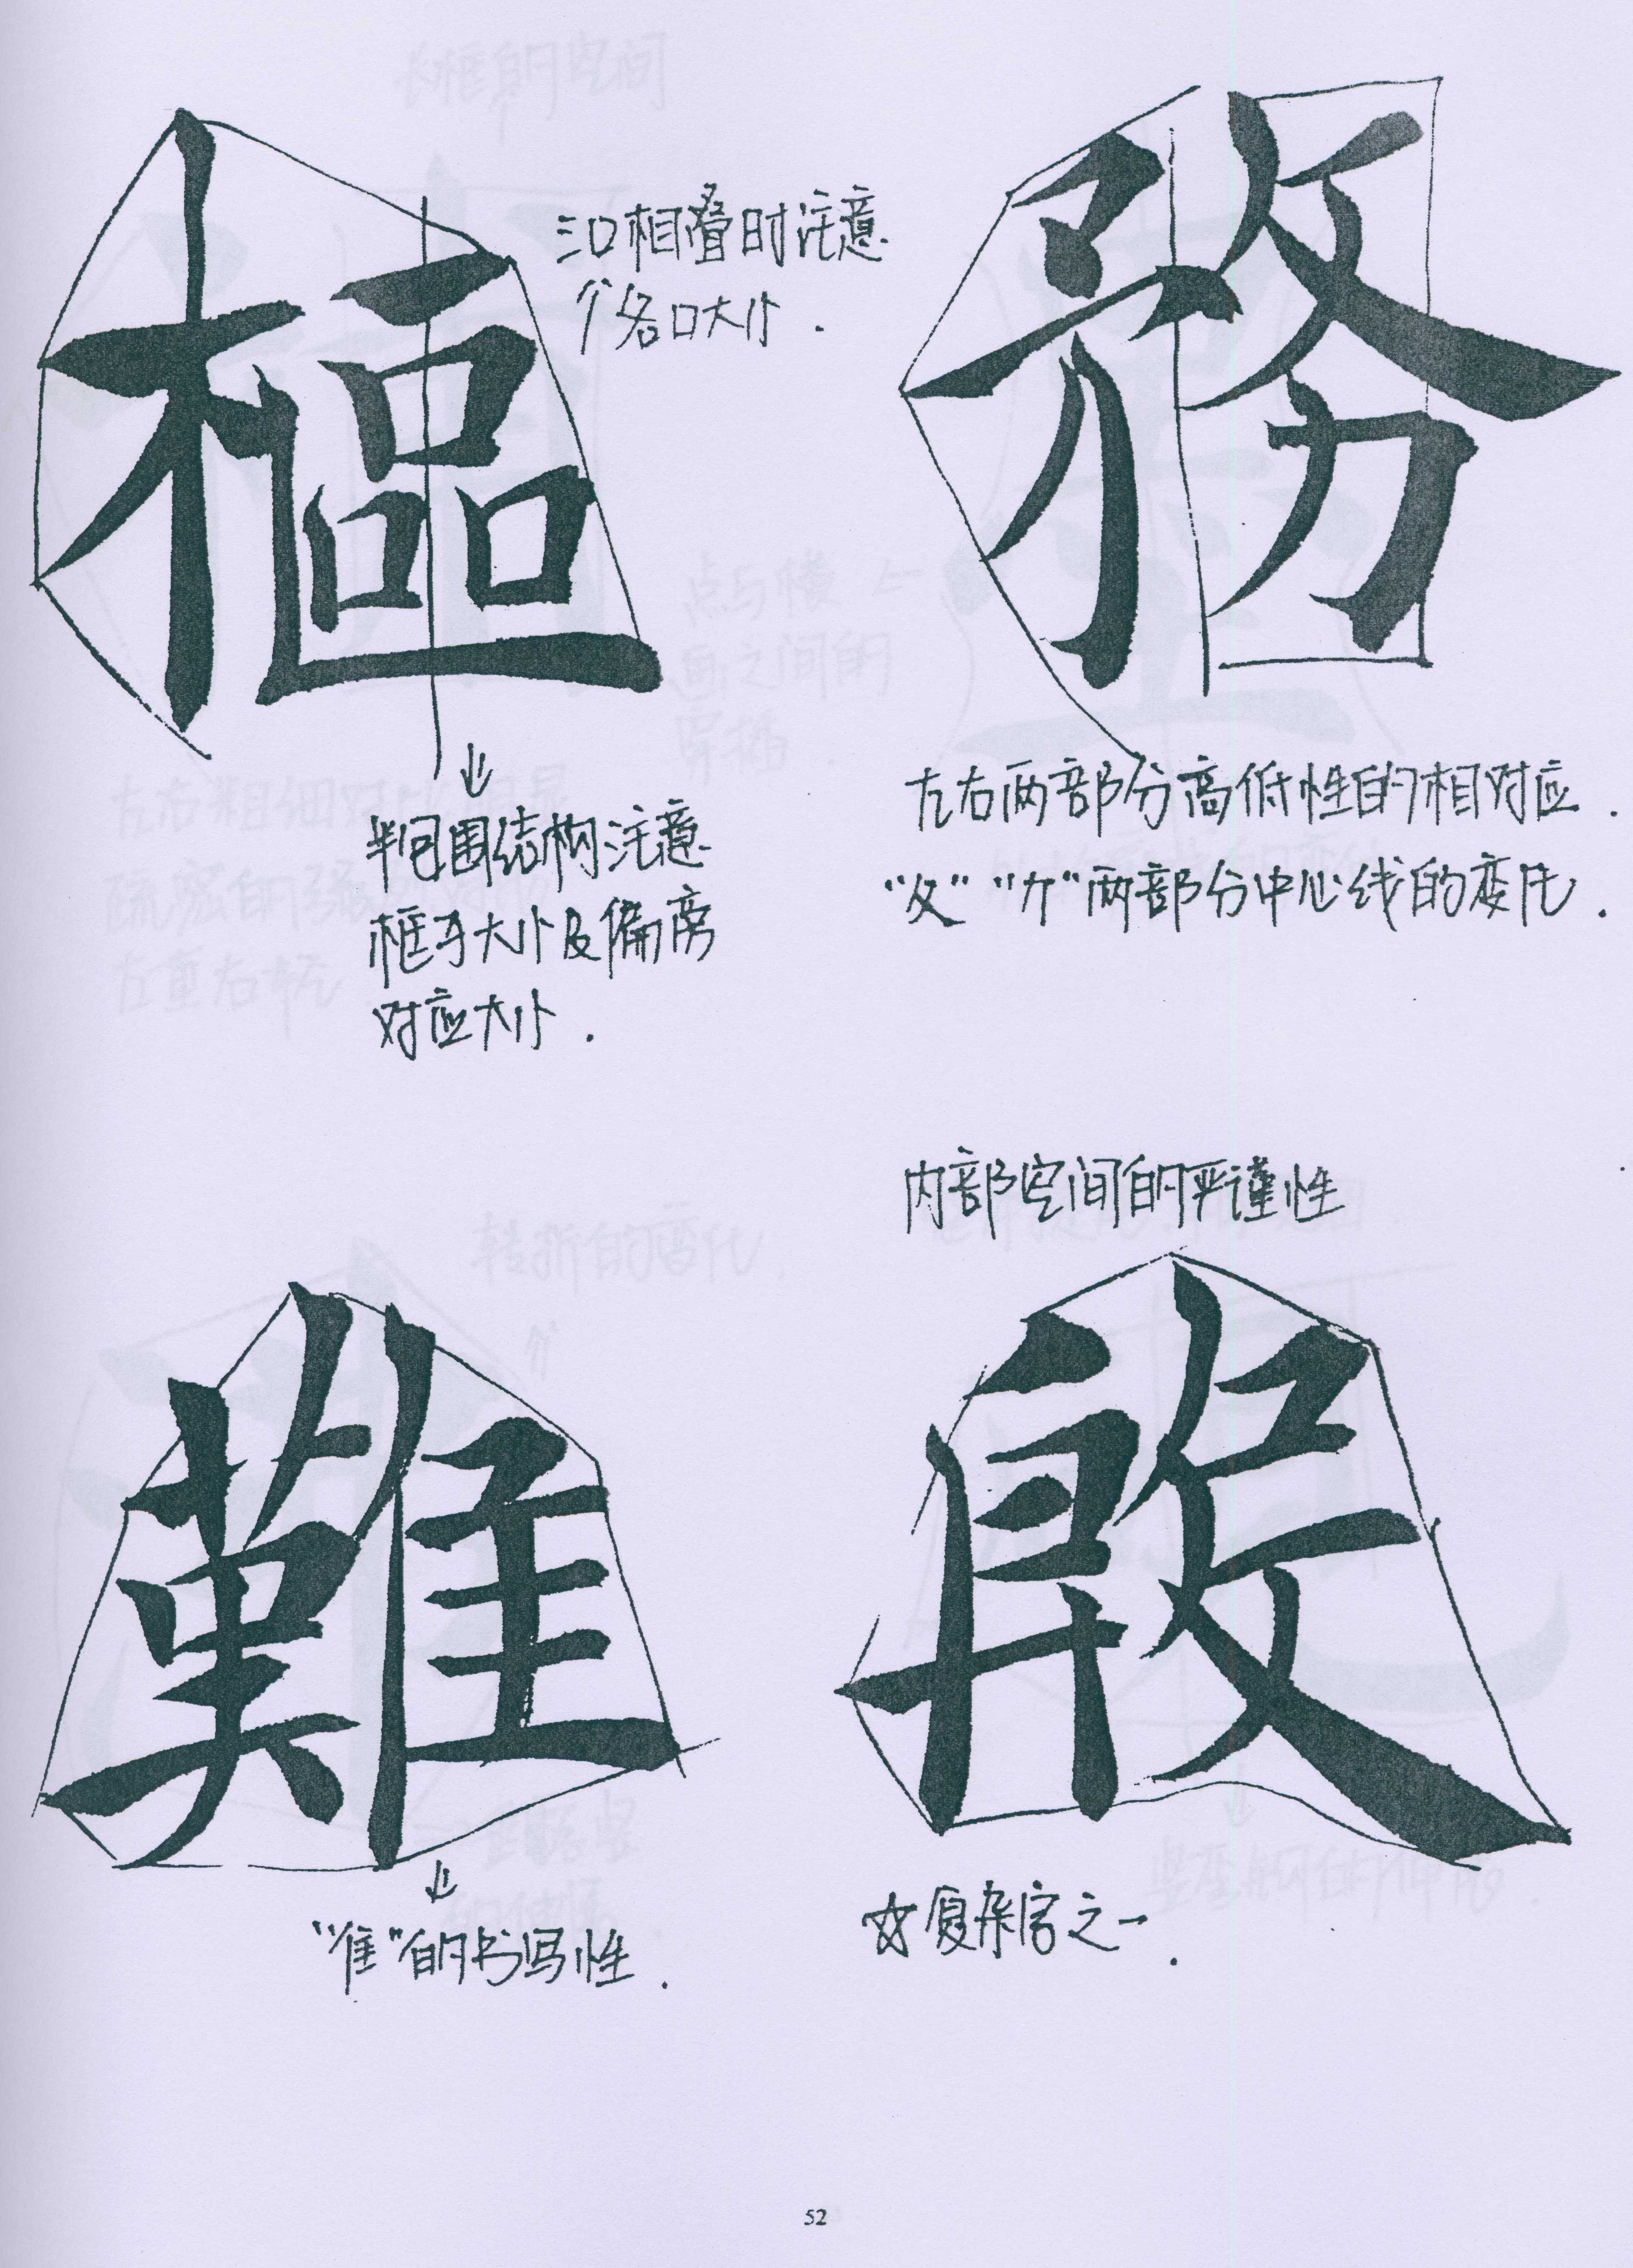 樞
三口相叠时注意
各口大小.
半包围结构注意
框子大小及偏旁
对应大小.
務
左右两部分高低性的相对应.
“攵”“力”两部分中心线的变化.
難
“隹”的书写性.
内部空间的严谨性
殷
☆复杂字之一.
52